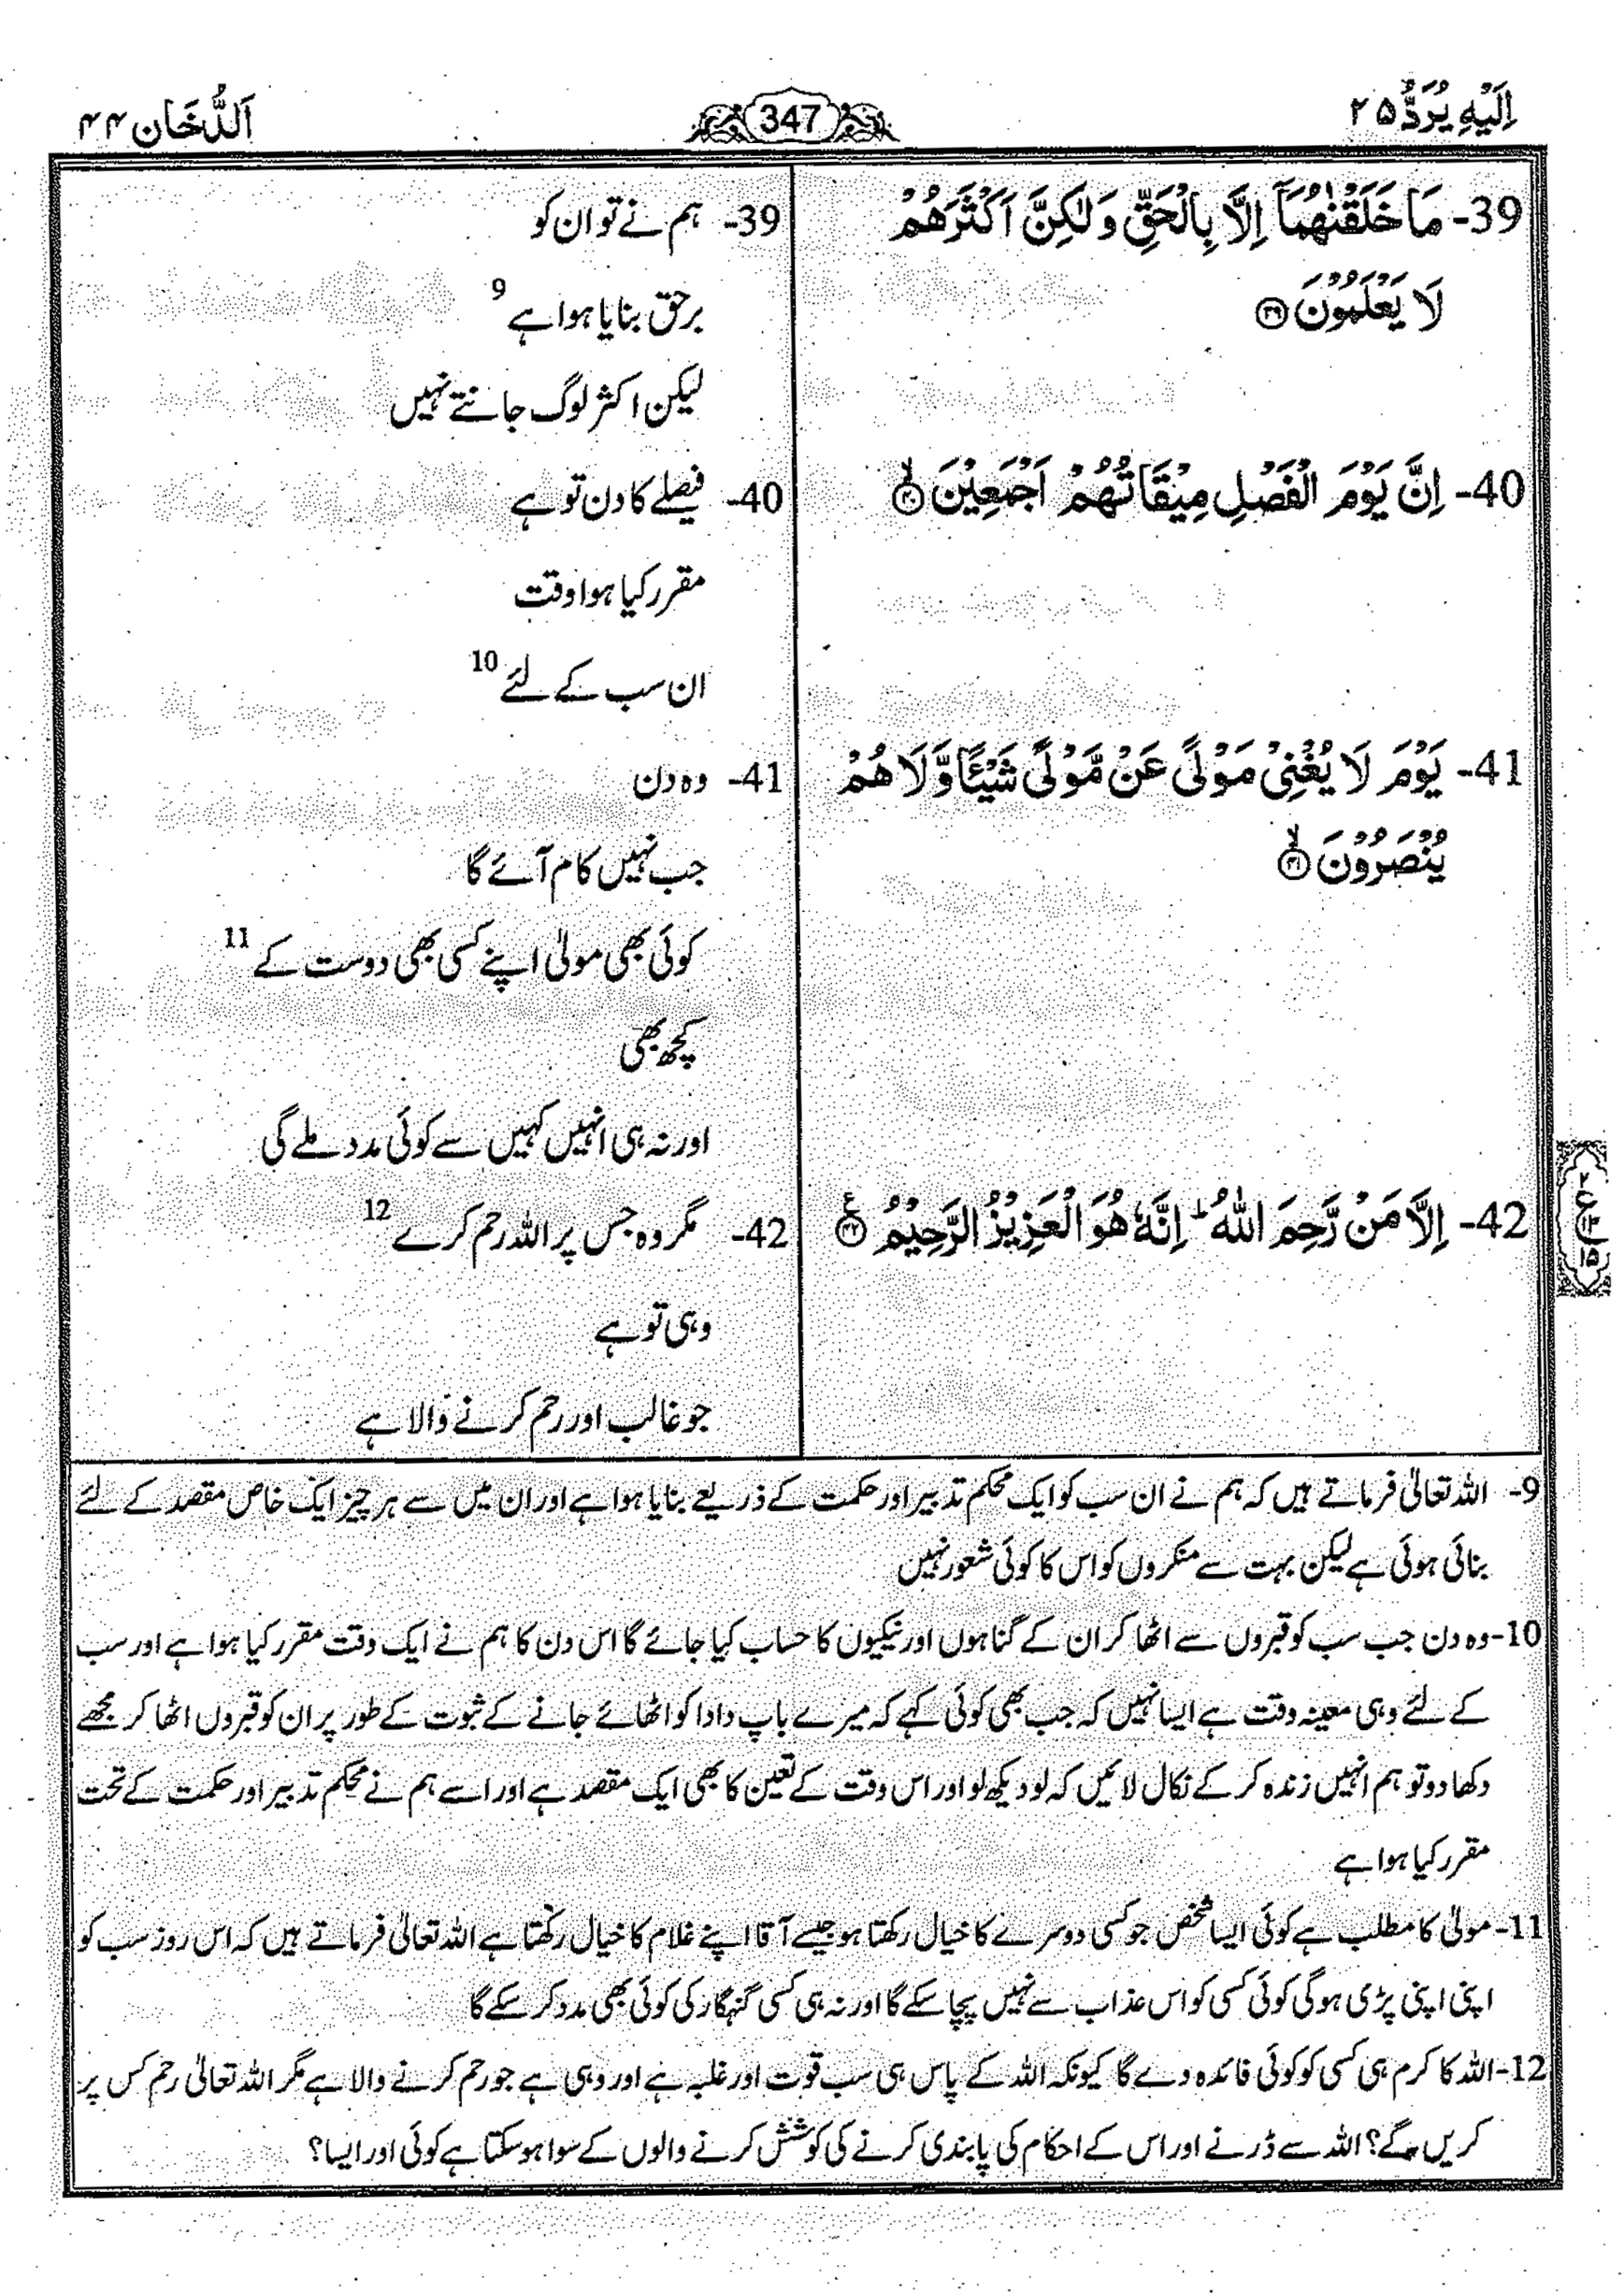 اِلَيْهِ يُرَدُّ ۲۵
347
اَلدُّخَان ۴۴
39- مَا خَلَقْنٰهُمَآ اِلَّا بِالْحَقِّ وَلٰكِنَّ اَكْثَرَهُمْ
لَا يَعْلَمُوْنَ ﴿۳۹﴾
40- اِنَّ يَوْمَ الْفَصْلِ مِيْقَاتُهُمْ اَجْمَعِيْنَ ۙ﴿۴۰﴾
41- يَوْمَ لَا يُغْنِيْ مَوْلًى عَنْ مَّوْلًى شَيْئًا وَّلَا هُمْ
يُنْصَرُوْنَ ۙ﴿۴۱﴾
42- اِلَّا مَنْ رَّحِمَ اللّٰهُ ؕ اِنَّهٗ هُوَ الْعَزِيْزُ الرَّحِيْمُ ﴿۴۲﴾
39- ہم نے تو ان کو
برحق بنایا ہوا ہے 9
لیکن اکثر لوگ جانتے نہیں
40- فیصلے کا دن تو ہے
مقرر کیا ہوا وقت
ان سب کے لئے 10
41- وہ دن
جب نہیں کام آئے گا
کوئی بھی مولیٰ اپنے کسی بھی دوست کے 11
کچھ بھی
اور نہ ہی انہیں کہیں سے کوئی مدد ملے گی
42- مگر وہ جس پر اللہ رحم کرے 12
وہی تو ہے
جو غالب اور رحم کرنے والا ہے
9- اللہ تعالیٰ فرماتے ہیں کہ ہم نے ان سب کو ایک محکم تدبیر اور حکمت کے ذریعے بنایا ہوا ہے اور ان میں سے ہر چیز ایک خاص مقصد کے لئے
بنائی ہوئی ہے لیکن بہت سے منکروں کو اس کا کوئی شعور نہیں
10- وہ دن جب سب کو قبروں سے اٹھا کر ان کے گناہوں اور نیکیوں کا حساب کیا جائے گا اس دن کا ہم نے ایک وقت مقرر کیا ہوا ہے اور سب
کے لئے وہی معینہ وقت ہے ایسا نہیں کہ جب بھی کوئی کہے کہ میرے باپ دادا کو اٹھائے جانے کے ثبوت کے طور پر ان کو قبروں اٹھا کر مجھے
دکھا دو تو ہم انہیں زندہ کر کے نکال لائیں کہ لو دیکھ لو اور اس وقت کے تعین کا بھی ایک مقصد ہے اور اسے ہم نے محکم تدبیر اور حکمت کے تحت
مقرر کیا ہوا ہے
11- مولیٰ کا مطلب ہے کوئی ایسا شخص جو کسی دوسرے کا خیال رکھتا ہو جیسے آقا اپنے غلام کا خیال رکھتا ہے اللہ تعالیٰ فرماتے ہیں کہ اس روز سب کو
اپنی اپنی پڑی ہوگی کوئی کسی کو اس عذاب سے نہیں بچا سکے گا اور نہ ہی کسی گنہگار کی کوئی بھی مدد کر سکے گا
12- اللہ کا کرم ہی کسی کو کوئی فائدہ دے گا کیونکہ اللہ کے پاس ہی سب قوت اور غلبہ ہے اور وہی ہے جو رحم کرنے والا ہے مگر اللہ تعالیٰ رحم کس پر
کریں گے؟ اللہ سے ڈرنے اور اس کے احکام کی پابندی کرنے کی کوشش کرنے والوں کے سوا ہو سکتا ہے کوئی اور ایسا؟